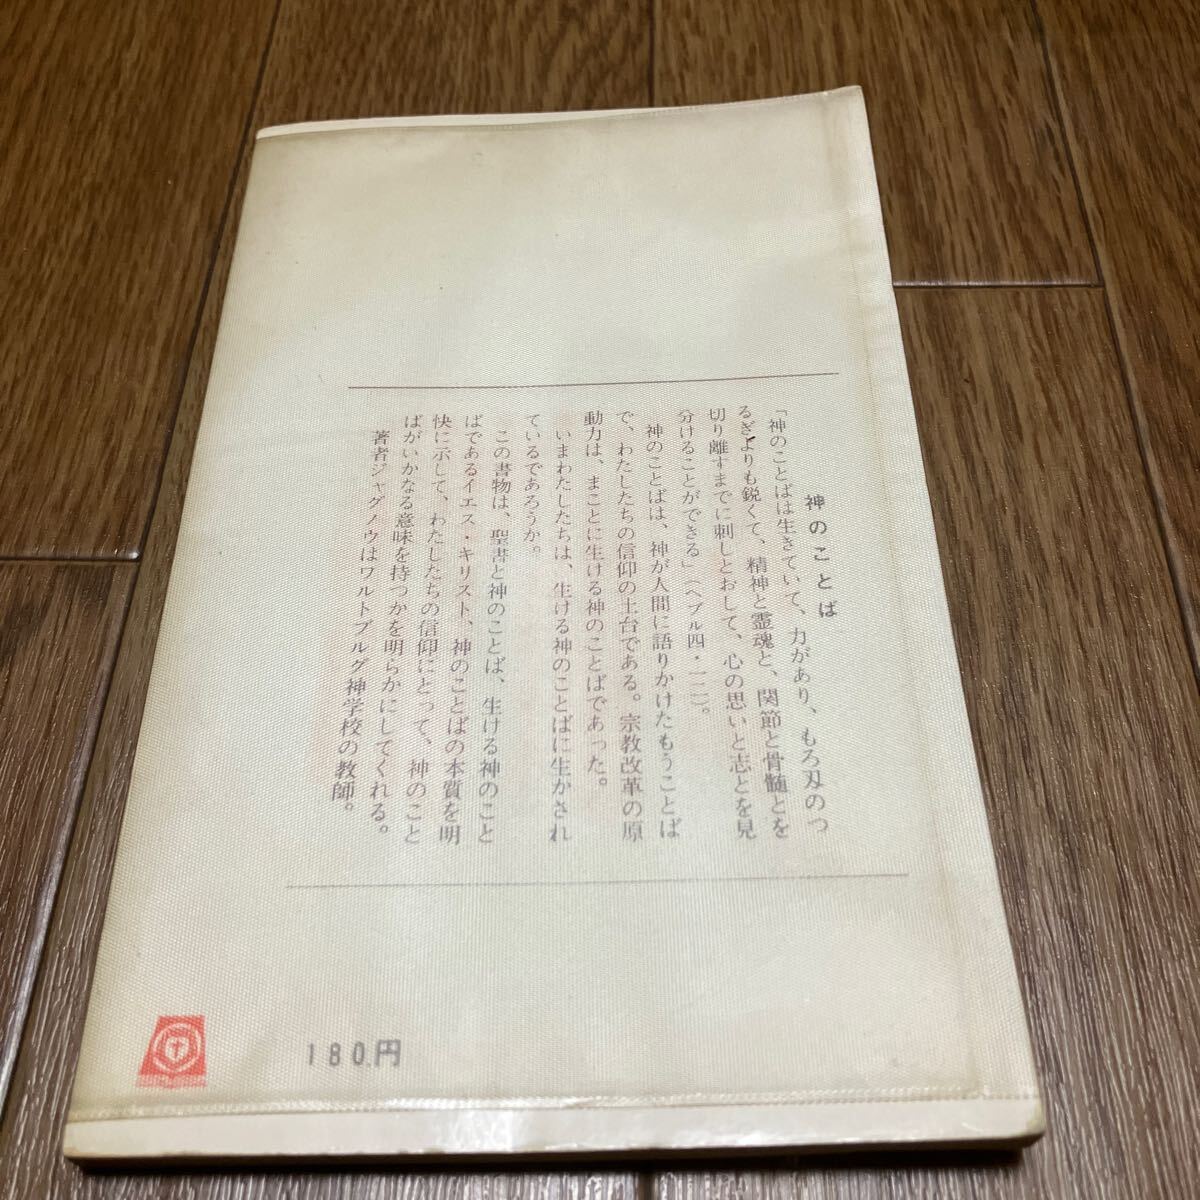 神のことば
「神のことばは生きていて、力があり、もろ刃のつ
るぎよりも鋭くて、精神と霊魂と、関節と骨髄とを
切り離すまでに刺しとおして、心の思いと志とを見
分けることができる」(ヘブル四・一二)。
神のことばは、神が人間に語りかけたもうことば
で、わたしたちの信仰の土台である。宗教改革の原
動力は、まことに生ける神のことばであった。
いまわたしたちは、生ける神のことばに生かされ
ているであろうか。
この書物は、聖書と神のことば、生ける神のこと
ばであるイエス・キリスト、神のことばの本質を明
快に示して、わたしたちの信仰にとって、神のこと
ばがいかなる意味を持つかを明らかにしてくれる。
著者ジャグノウはワルトブルグ神学校の教師。
180.円